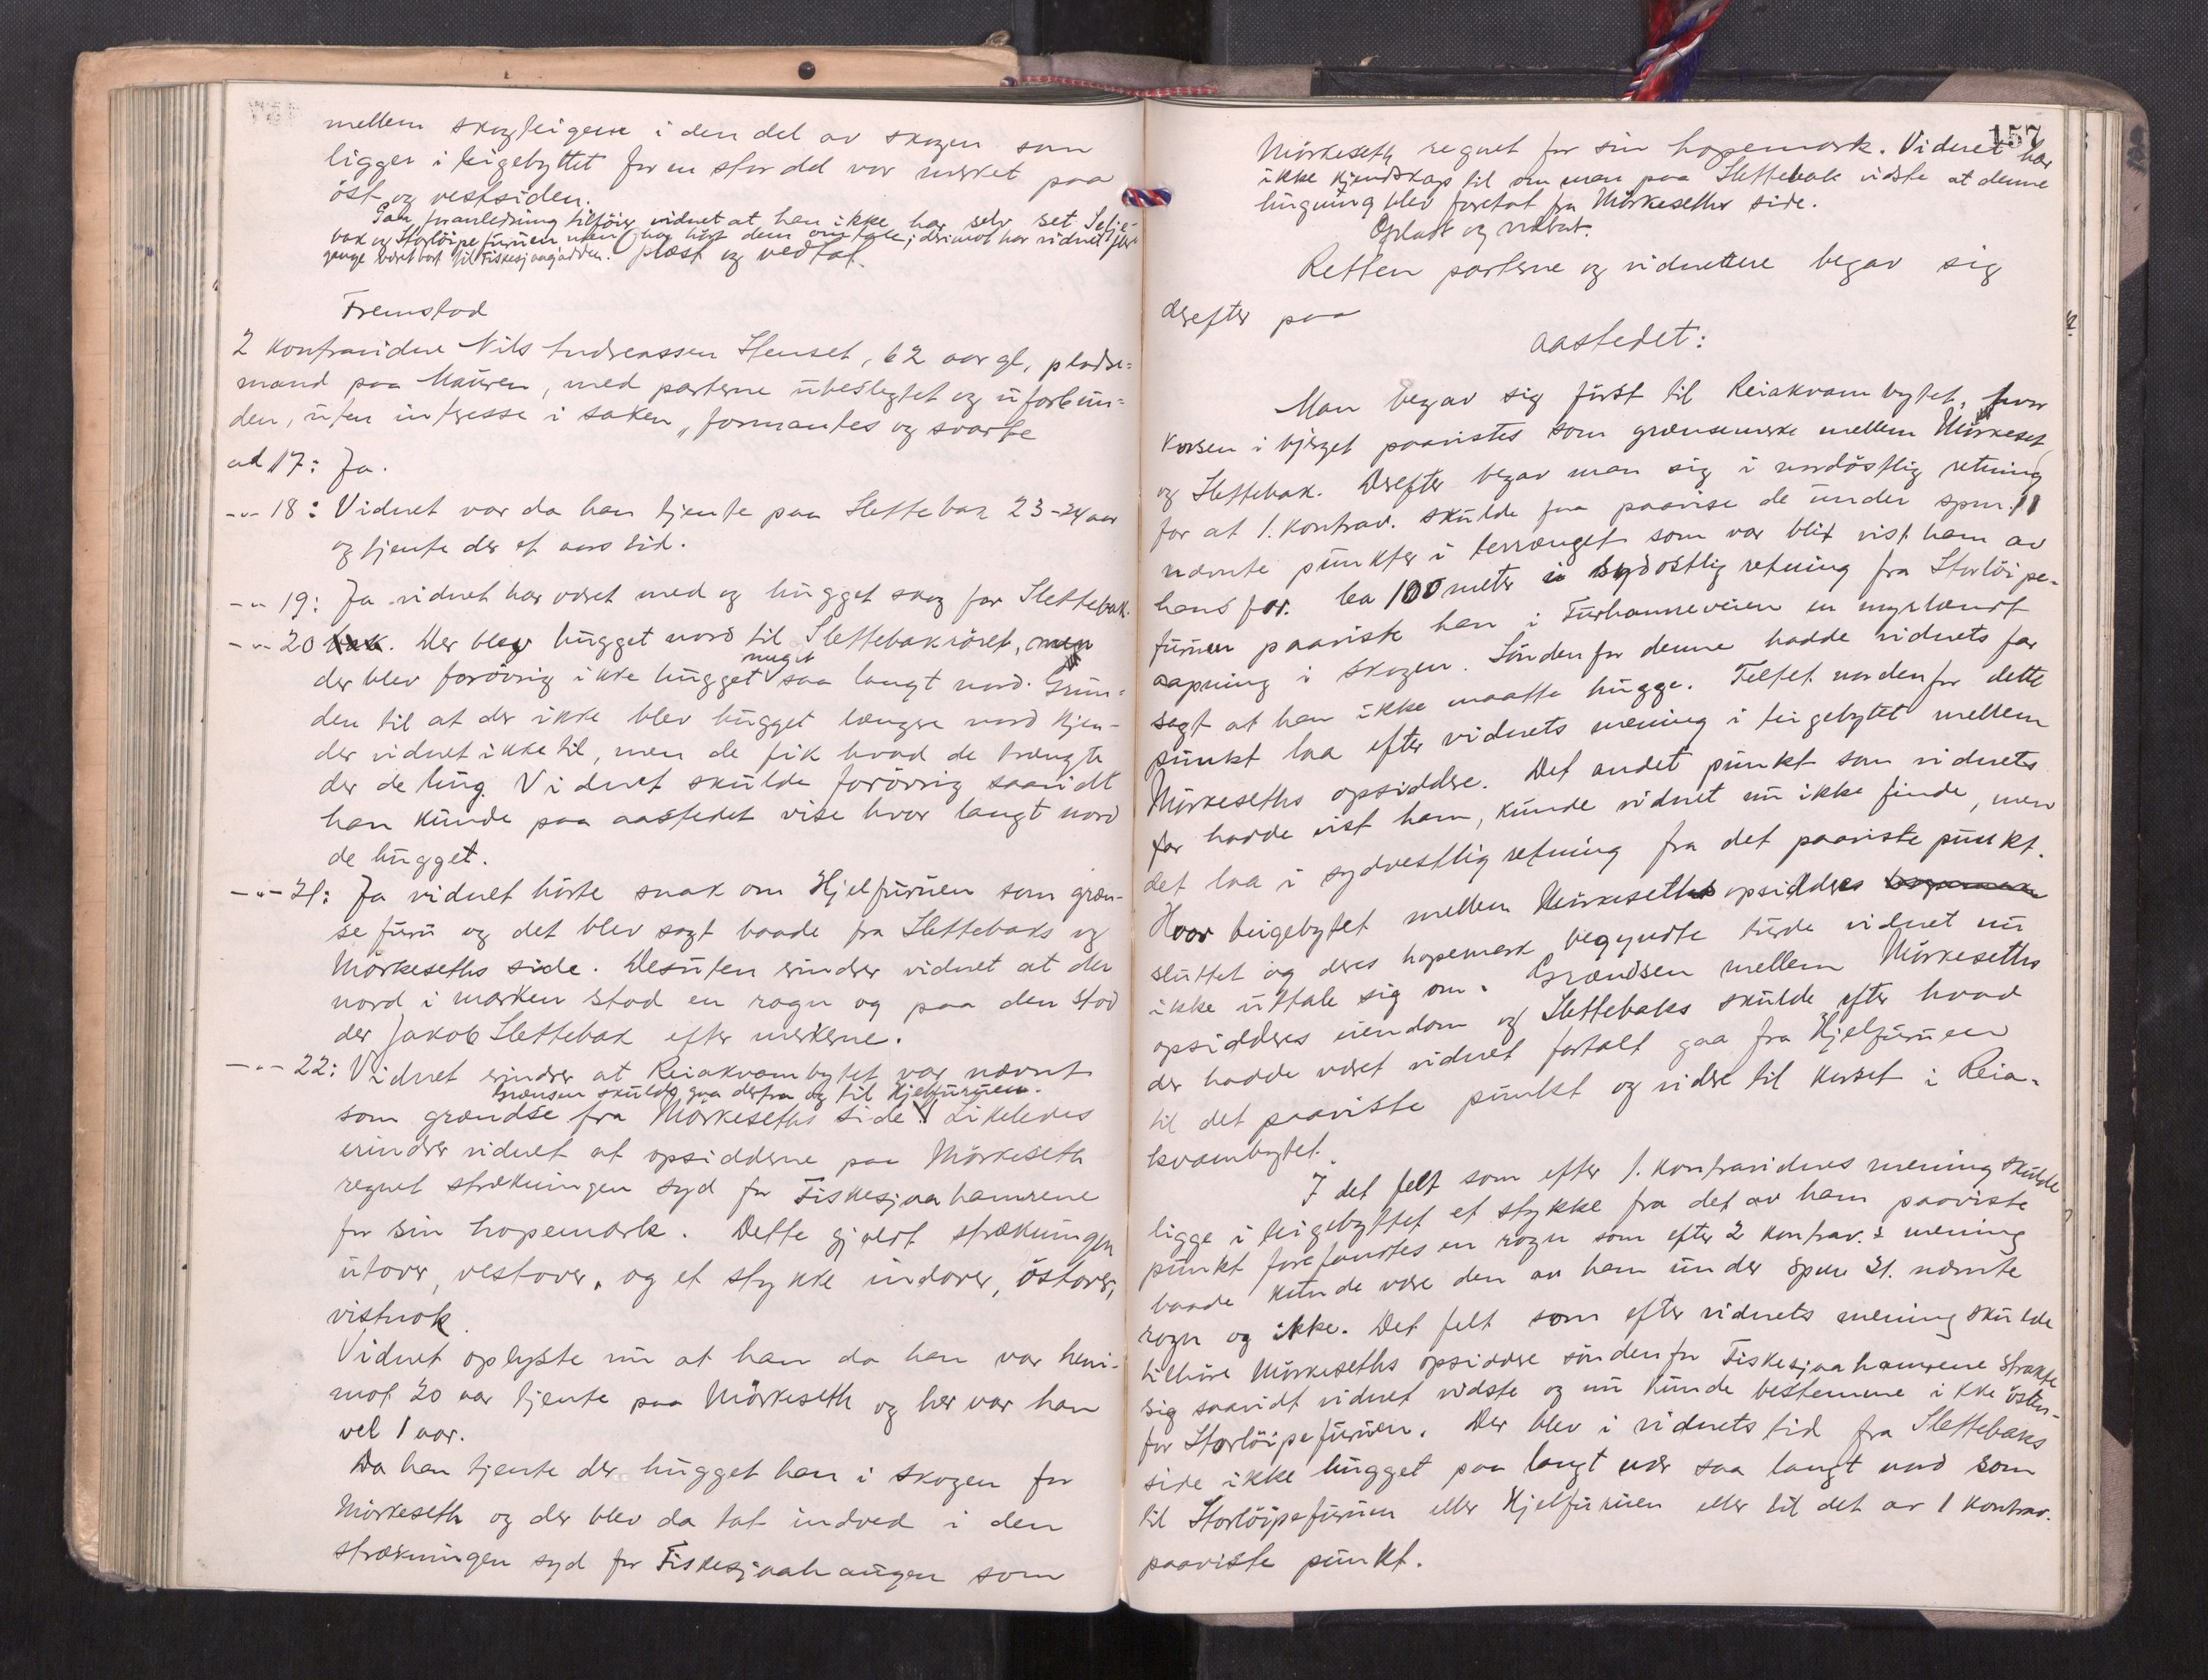 mellem skogteigene i den del av skogen som
ligger i teigebyttet for en stor del var merket paa
öst og vestsiden.
Paa foranledning tilföier vidnet at han ikke har selv set Selje-
bak og Storlöipefuruen men har hört dem omtale; derimot har vidnet flere
gange været bort til Fiskesjaagadden. Oplæst og vedtat.
Fremstod
2 kontravidne Nils Andreassen Henset, 62 aar gl, pladse-
mand paa Mauren, med parterne ubeslegtet og uforbun-
den, uten intresse i saken, formantes og svarte
ad 17: Ja.
-"- 18: Vidnet var da han tjente paa Slettebak 23-24 aar
og tjente der et aars tid.
-"- 19: Ja vidnet har været med og hugget skog for Slettebak.
-"- 20 Der blev hugget nord til Slettebakröret, men
der blev forövrig ikke hugget noget saa langt nord. Grun-
den til at der ikke blev hugget længre nord kjen-
der vidnet ikke til, men de fik hvad de trængte
der de hug. Vidnet skulde forövrig saavidt
han kunde paa aastedet vise hvor langt nord
de hugget.
-"- 21: Ja vidnet hörte snak om Hjelfuruen som græn-
se furu og det blev sagt baade fra Slettebaks og
Mörkeseths side. Desuten erindrer vidnet at der
nord i marken stod en rogn og paa den stod
der Jakob Slettebak efter merkerne.
-"- 22: Vidnet erindrer at Reiakvambytet var nævnt
Grænsen skulde gaa derfra og til Hjelfuruen.
som grændse fra Mörkeseths side. Likeledes
erindrer vidnet at opsidderne paa Mörkeseth
regnet strækningen syd for Fiskesjaahamrene
for sin hopemark. Dette gjaldt strækningen
utover, vestover, og et stykke indover, östover,
vistnok.
Vidnet oplyste nu at han da han var heni-
mot 20 aar tjente paa Mörkeseth og her var han
vel 1 aar.
Da han tjente der hugget han i skogen for
Mörkeseth og der blev da tat indved i den
strækningen syd for Fiskesjaahaugen som
157
Mörkeseth regnet for sin hopemark. Vidnet har
ikke kjendskap til om man paa Slettebak vidste at denne
hugning blev foretat fra Mörkeseths side.
Oplæst og vedtat.
Retten parterne og vidnerne begav sig
derefter paa
aastedet:
Man begav sig först til Reiakvambytet, hvor
korsen i bjerget paavistes som grænsemerke mellem Mörkeset
og Slettebak. Derefter begav man sig i nordöstlig retning
for at 1. kontrav. skulde faa paavise de under spm. 11
nævnte punkter i terrænget som var blit vist ham av
hans far. Ca 100 meter i sydostlig retning fra Storlöipe-
furuen paaviste han i Furhammeveien en myrlændt
aapning i skogen. Söndenfor denne hadde vidnets far
sagt at han ikke maatte hugge. Feltet nordenfor dette
punkt laa efter vidnets mening i teigebytet mellem
Mörkeseths opsiddere. Det andet punkt som vidnets
far hadde vist ham, kunde vidnet nu ikke finde, men
det laa i sydvestlig retning fra det paaviste punkt.
Hvor teigebytet mellem Mörkeseths opsidderes
sluttet og deres hopemark begyndte turde vidnet nu
ikke uttale sig om. Grændsen mellem Mörkeseths
opsidderes eiendom og Slettebaks skulde efter hvad
der hadde været vidnet fortalt gaa fra Hjelfuruen
til det paaviste punkt og videre til korset i Reia-
kvambytet.
I det felt som efter 1. kontravidnes mening skulde
ligge i teigebyttet et stykke fra det av ham paaviste
punkt forefandtes en rogn som efter 2 kontrav.s mening
baade kunde være den av ham under spm 21. nævnte
rogn og ikke. Det felt som efter vidnets mening skulde
tilhöre Mörkeseths opsiddere söndenfor Fiskesjaahamrene strakte
sig saavidt vidnet vidste og nu kunde bestemme ikke östen-
for Storlöipefuruen. Der blev i vidnets tid fra Slettebaks
side ikke hugget paa langt nær saa langt nord som
til Storlöipefuruen eller Hjelfuruen eller til det av 1 kontrav.
paaviste punkt.